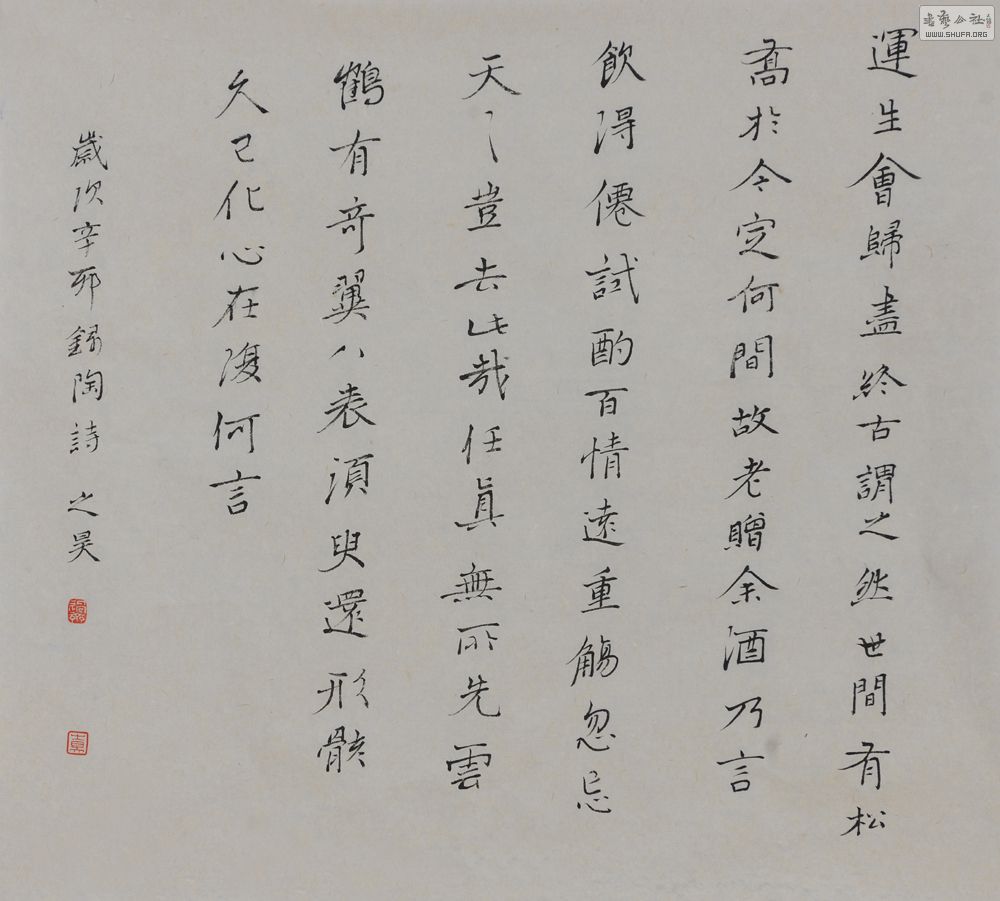 運生會歸盡終古謂之然世間有松
喬於今定何間故老贈余酒乃言
飲得僊試酌百情遠重觴忽忘
天〻豈去此哉任真無所先雲
鶴有奇翼八表須臾還形骸
久已化心在復何言
歲次辛卯錄陶詩 之昊
書藝公社
WWW.SHUFA.ORG